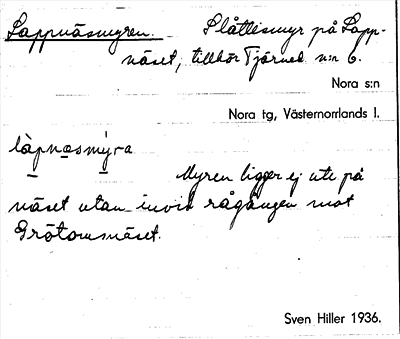 Lappnäsmyren. Slåttesmyr på Lapp-
näset, tillhör Tjärneb. n:r 6.
Nora s:n
Nora tg, Västernorrlands l.
làpnæsmýra
Myren ligger ej ute på
näset utan invid rågången mot
Grötomsnäset.
Sven Hiller 1936.